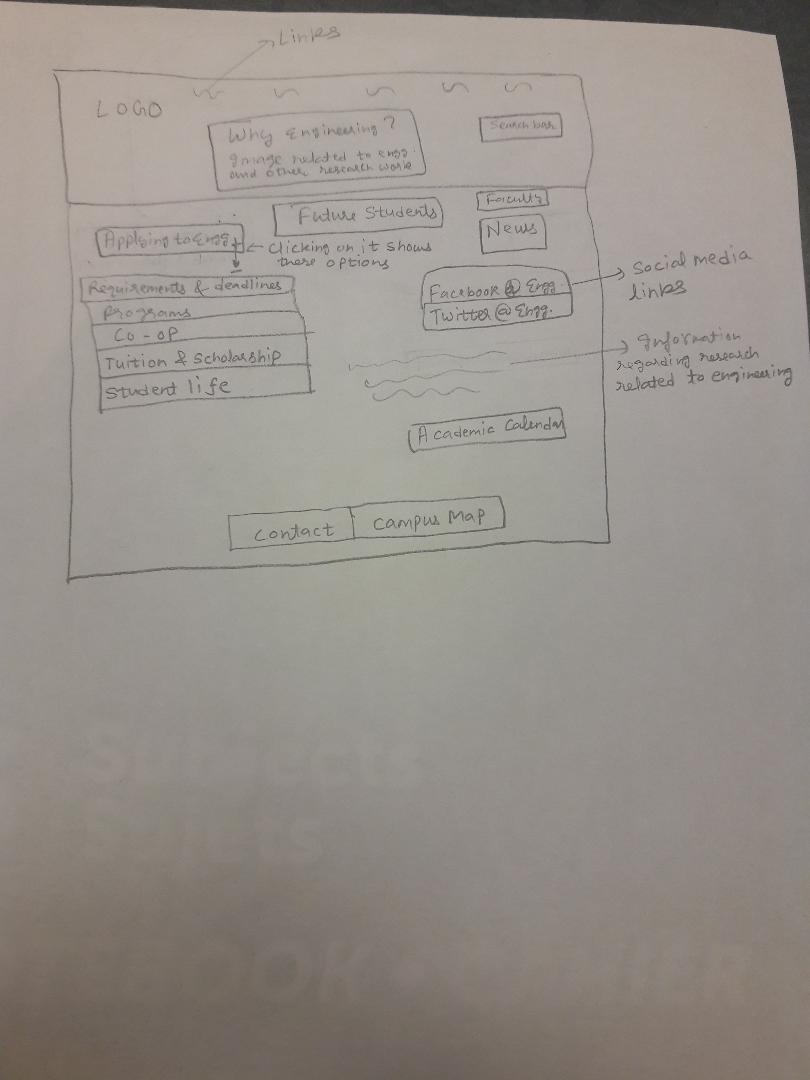 Links
LOGO
Why Engineering?
Image related to engg.
and other research work
Search bar
Future Students
Faculty
News
Applying to Engg.
Clicking on it shows
these options
Requirements & deadlines
Programs
Co-op
Tuition & Scholarship
Student life
Facebook @ Engg.
Twitter @ Engg.
Social media
links
Information
regarding research
related to engineering
Academic Calendar
Contact
Campus Map
Subjects
Sujets